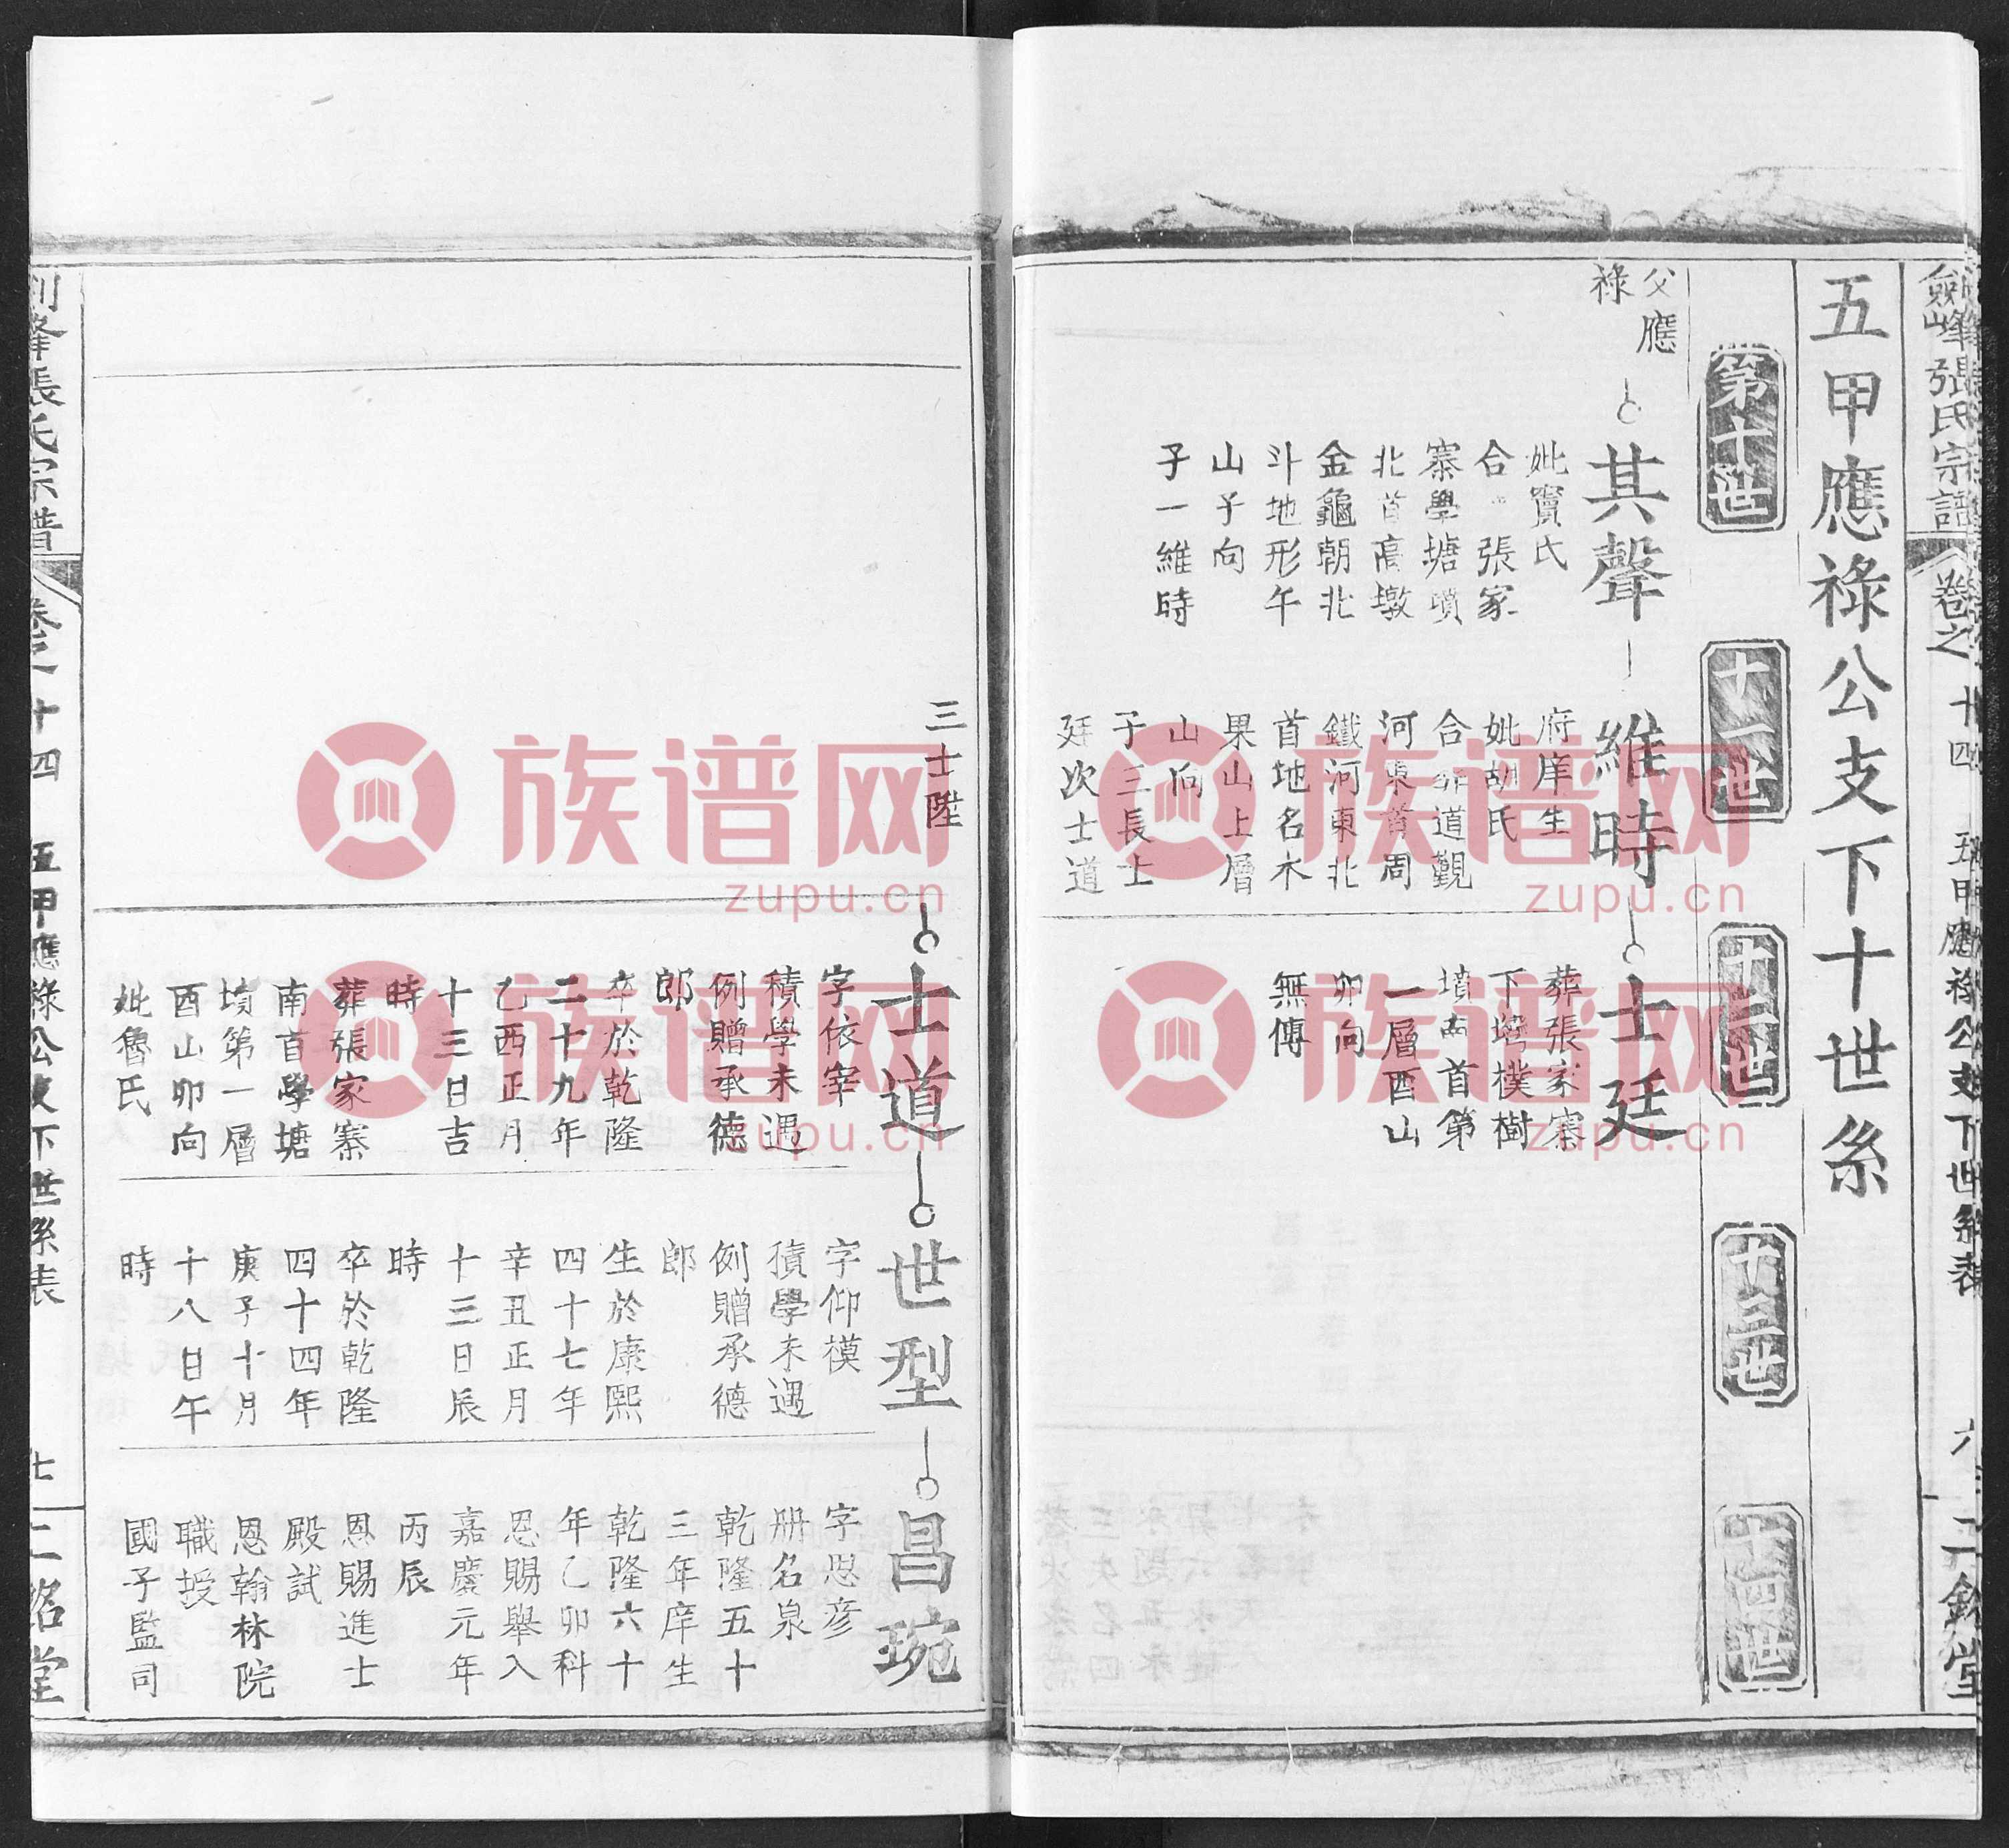 劍峰張氏宗譜
卷之十四
五甲應祿公支下世系表
六
二銘堂
五甲應祿公支下十世系
第十世
十一世
十二世
十三世
十四世
父應
祿
其聲
妣竇氏
合 張家
寨學塘墳
北首高墩
金龜朝北
斗地形午
山子向
子一維時
維時
府庠生
妣胡氏
合 道觀
河東首周
鐵河東北
首地名木
果山上層
山向
子三長士
廷次士道
士廷
葬張家寨
下塆樸樹
墳南首第
一層酉山
卯向
無傳
三士陞
士道
字依宰
積學未遇
例贈承德
郎
卒於乾隆
二十九年
乙酉正月
十三日吉
時
葬張家寨
南首學塘
墳第一層
酉山卯向
妣魯氏
世型
字仰模
積學未遇
例贈承德
郎
生於康熙
四十七年
辛丑正月
十三日辰
時
卒於乾隆
四十四年
庚子十月
十八日午
時
昌琬
字思彥
册名泉
乾隆五十
三年庠生
乾隆六十
年乙卯科
恩賜舉人
嘉慶元年
丙辰
恩賜進士
殿試
恩翰林院
職授
國子監司
劍峰張氏宗譜
卷之十四
五甲應祿公支下世系表
七
二銘堂
族谱网
zupu.cn
族谱网
zupu.cn
族谱网
zupu.cn
族谱网
zupu.cn